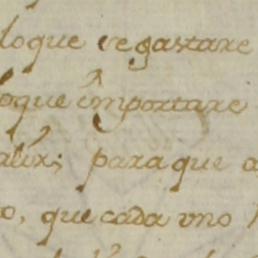 loque se gastare
oque importare
alir; para que a
o, que cada vno